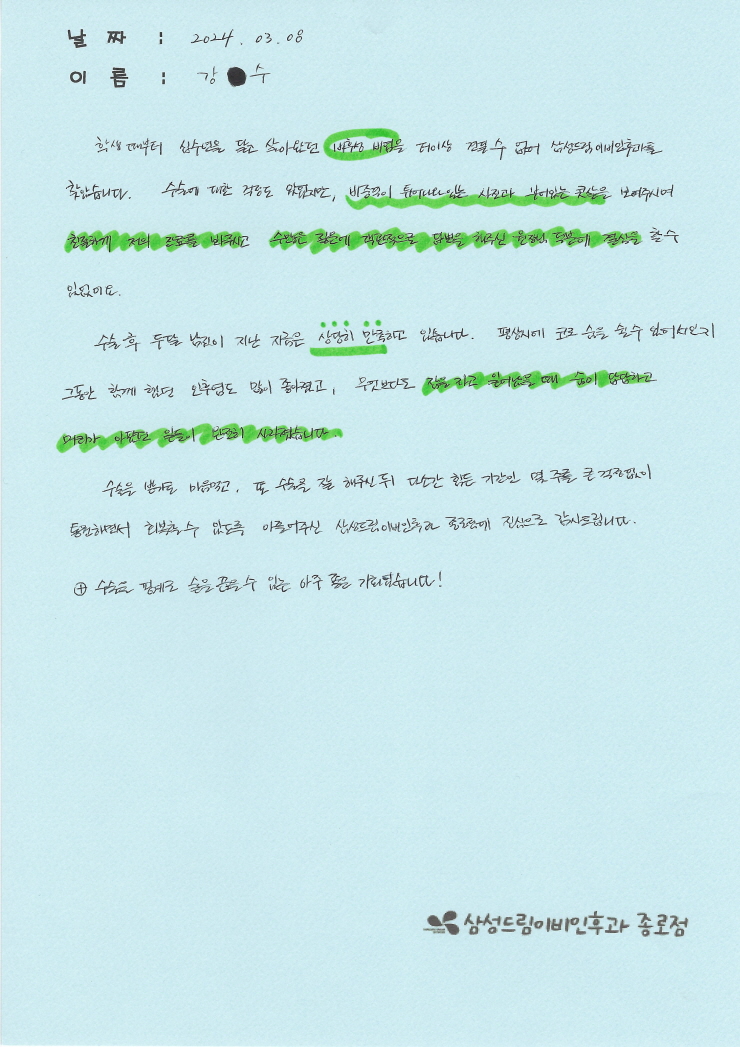 날 짜 : 2024. 03. 08
이 름 : 강 수
학생 때부터 십수년을 달고 살아왔던 비염을 더이상 견딜 수 없어 삼성드림이비인후과를
찾았습니다. 수술에 대한 걱정도 있었지만, 비중격이 휘어있는 사진과 부어있는 콧살을 보여주시며
친절하게 저의 진료를 봐주시고 수많은 질문에 객관적으로 답변을 해주신 원장님 덕분에 결심을 할 수
있었어요.
수술 후 두달 남짓이 지난 지금은 상당히 만족하고 있습니다. 평상시에 코로 숨을 쉴 수 있어서인지
그동안 함께 했던 인후염도 많이 좋아졌고, 무엇보다도 잠을 자고 일어났을 때 숨이 답답하고
머리가 아팠던 일들이 완전히 사라졌습니다.
수술을 받기로 마음먹고, 또 수술을 잘 해주신 뒤 다소간 힘든 기간인 몇 주를 큰 걱정없이
통원하면서 회복할 수 있도록 이끌어주신 삼성드림이비인후과 종로점에 진심으로 감사드립니다.
⊕ 수술을 핑계로 술을 끊을 수 있는 아주 좋은 기회였습니다!
삼성드림이비인후과 종로점